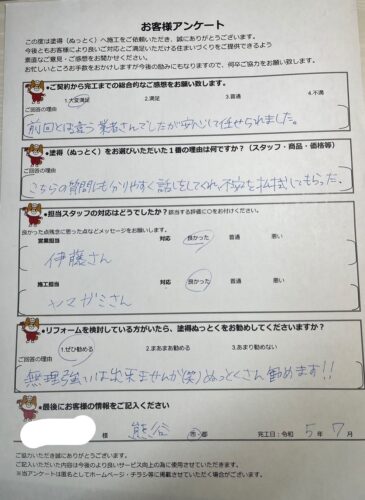 お客様アンケート
この度は塗得（ぬっとく）へ施工をご依頼いただき、誠にありがとうございます。
今後ともお客様により良いご対応とご満足いただける住まいづくりをご提供できるよう
素直なご意見・ご感想をお聞かせください。
お忙しいところお手数をおかけしますが今後の励みにもなりますので、何卒ご協力をお願い致します。
●ご契約から完工までの総合的なご感想をお願い致します。
1.大変満足 2.満足 3.普通 4.不満
ご回答の理由
前回とは違う業者さんでしたが安心して任せられました。
●塗得（ぬっとく）をお選びいただいた1番の理由は何ですか？（スタッフ・商品・価格等）
ご回答の理由
こちらの質問にも分りやすく話しをしてくれ、不安を払拭してもらった。
●担当スタッフの対応はどうでしたか？該当する評価に〇をお付けください。
良かった点残念に思った点などメッセージをお願いします。
営業担当 対応 良かった 普通 悪い
伊藤さん
施工担当 対応 良かった 普通 悪い
ヤマガミさん
●リフォームを検討している方がいたら、塗得ぬっとくをお勧めしてくださいますか？
1.ぜひ勧める 2.まあまあ勧める 3.あまり勧めない
ご回答の理由
無理強いは出来ませんが(笑)ぬっとくさん勧めます!!
●最後にお客様の情報をご記入ください
様 熊谷 市・郡 完工日：令和 5年 7月
ご協力いただき誠にありがとうございます。
ご記入いただいた内容は今後のより良いサービス向上の為に使用させていただきます。
※当アンケートは匿名としてホームページ・チラシ等に掲載させていただく場合がございます。